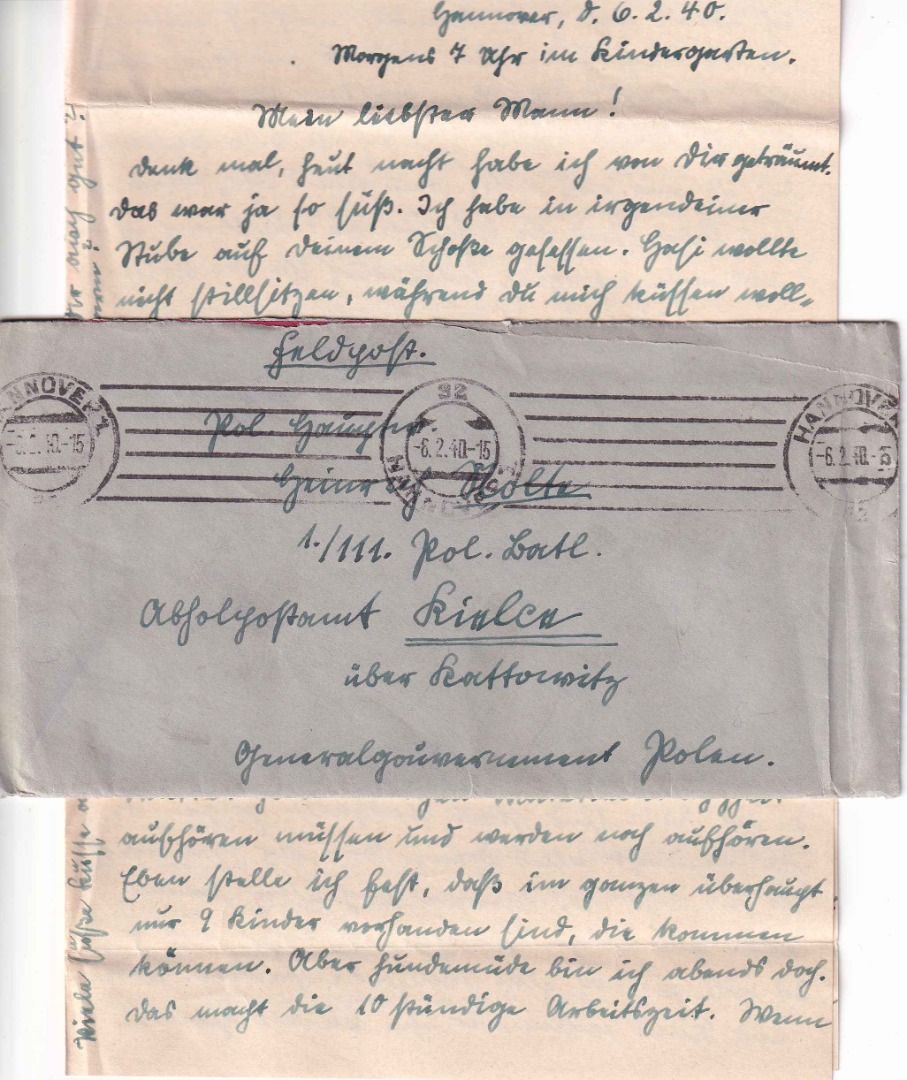 Hannover, d. 6.2.40.
Morgens 7 Uhr im Kindergarten.
Mein liebster Mann!
Denk mal, heut nacht habe ich von Dir geträumt.
Das war ja so süß. Ich habe in irgendeiner
Stube auf Deinem Schoße gesessen. Hasi wollte
nicht stillsitzen, während Du mich küssen woll-
Feldpost.
HANNOVER 1
-6.2.40.-15
92
HANNOVER 1
-6.2.40.-15
92
HANNOVER
-6.2.40.-15
92
Pol Hauptw.
Heinrich Nolte
1./111. Pol. Batl.
Abholpostamt Kielce
über Kattowitz
Generalgouvernement Polen.
aufhören müssen und werden noch aufhören.
Eben stelle ich fest, daß im ganzen überhaupt
nur 9 Kinder vorhanden sind, die kommen
können. Aber hundemüde bin ich abends doch.
Das macht die 10 stündige Arbeitszeit. Wenn
Dir auch gut?
Viele süße Küsse